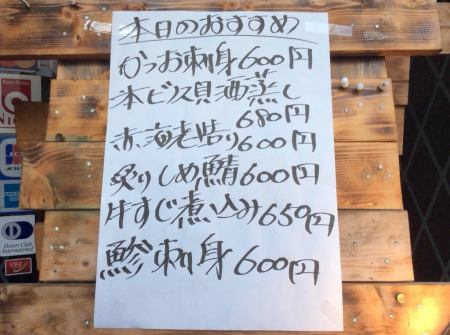 本日のおすすめ
かつお刺身600円
本ビノス貝酒蒸し
680円
赤海老造り600円
炙りしめ鯖600円
牛すじ煮込み650円
鯵刺身600円
JCB
Diners Club
International